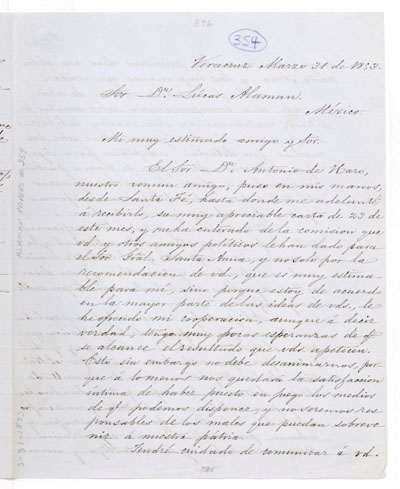 396
354
Veracruz Marzo 31 de 1853.
Sor. Dn. Lucas Alaman.
México.
Mi muy estimado amigo y Sor.
El Sor. Dn. Antonio de Haro,
nuestro comun amigo, puso en mis manos,
desde Santa Fé, hasta donde me adelanté
á recibirlo, su muy apreciable carta de 23 de
este mes, y me ha enterado de la comision que
vd. y otros amigos politicos le han dado para
el Sor. Gral. Santa Anna, y no solo por la
recomendacion de vd., que es muy estima-
ble para mi, sino porque estoy de acuerdo
en la mayor parte de las ideas de vds., le
he ofrecido mi cooperacion, aunque á decir
verdad, tengo muy pocas esperanzas de q.
se alcance el resultado que vds. apetecen.
Esto sin embargo no debe desanimarnos por
que á lo menos nos quedará la satisfaccion
íntima de haber puesto en juego los medios
de q. podemos disponer, y no seremos res-
ponsables de los males que puedan sobreve-
nir á nuestra pátria.
Tendré cuidado de comunicar á vd.
ALAMAN PAPERS no. 354
3-31-1853